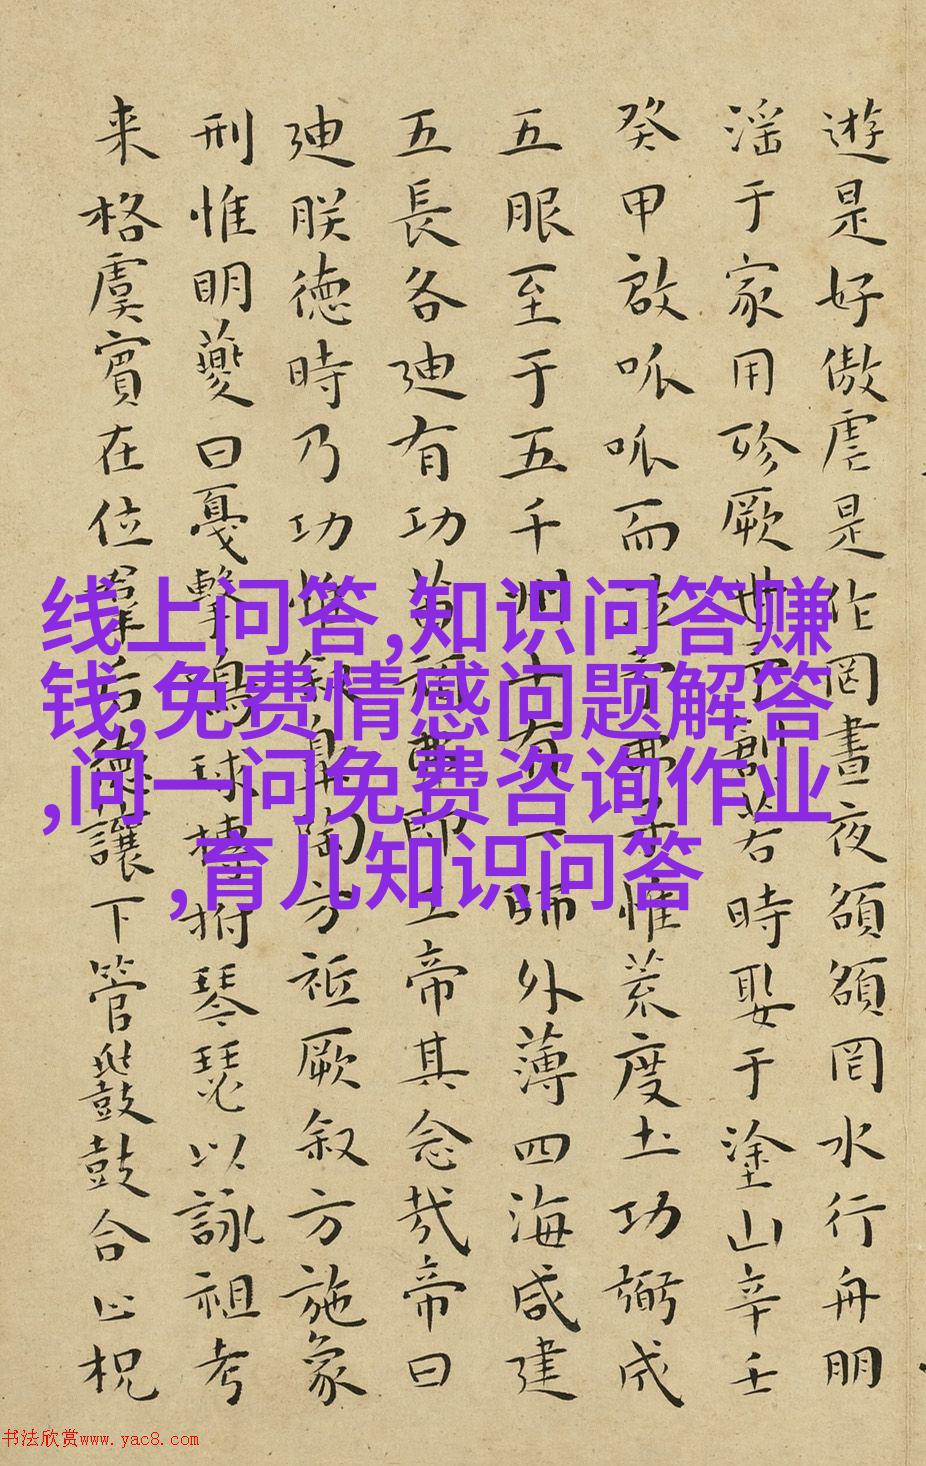 遊是好傲虐是作罔晝夜頟頟罔水行舟朋
滛于家用殄厥世予創若時娶于塗山辛壬
癸甲啟呱呱而泣予弗子惟荒度土功弼成
五服至于五千州十有二師外薄四海咸建
五長各迪有功苗頑弗即工帝其念哉帝曰
迪朕德時乃功惟叙皋陶方祗厥叙方施象
刑惟明夔曰戛擊鳴球搏拊琴瑟以詠祖考
来格虞賓在位羣后德讓下管鼗鼓合止柷
线上问答,知识问答赚
钱,免费情感问题解答
,问一问免费咨询作业
,育儿知识问答
书法欣赏www.yac8.com